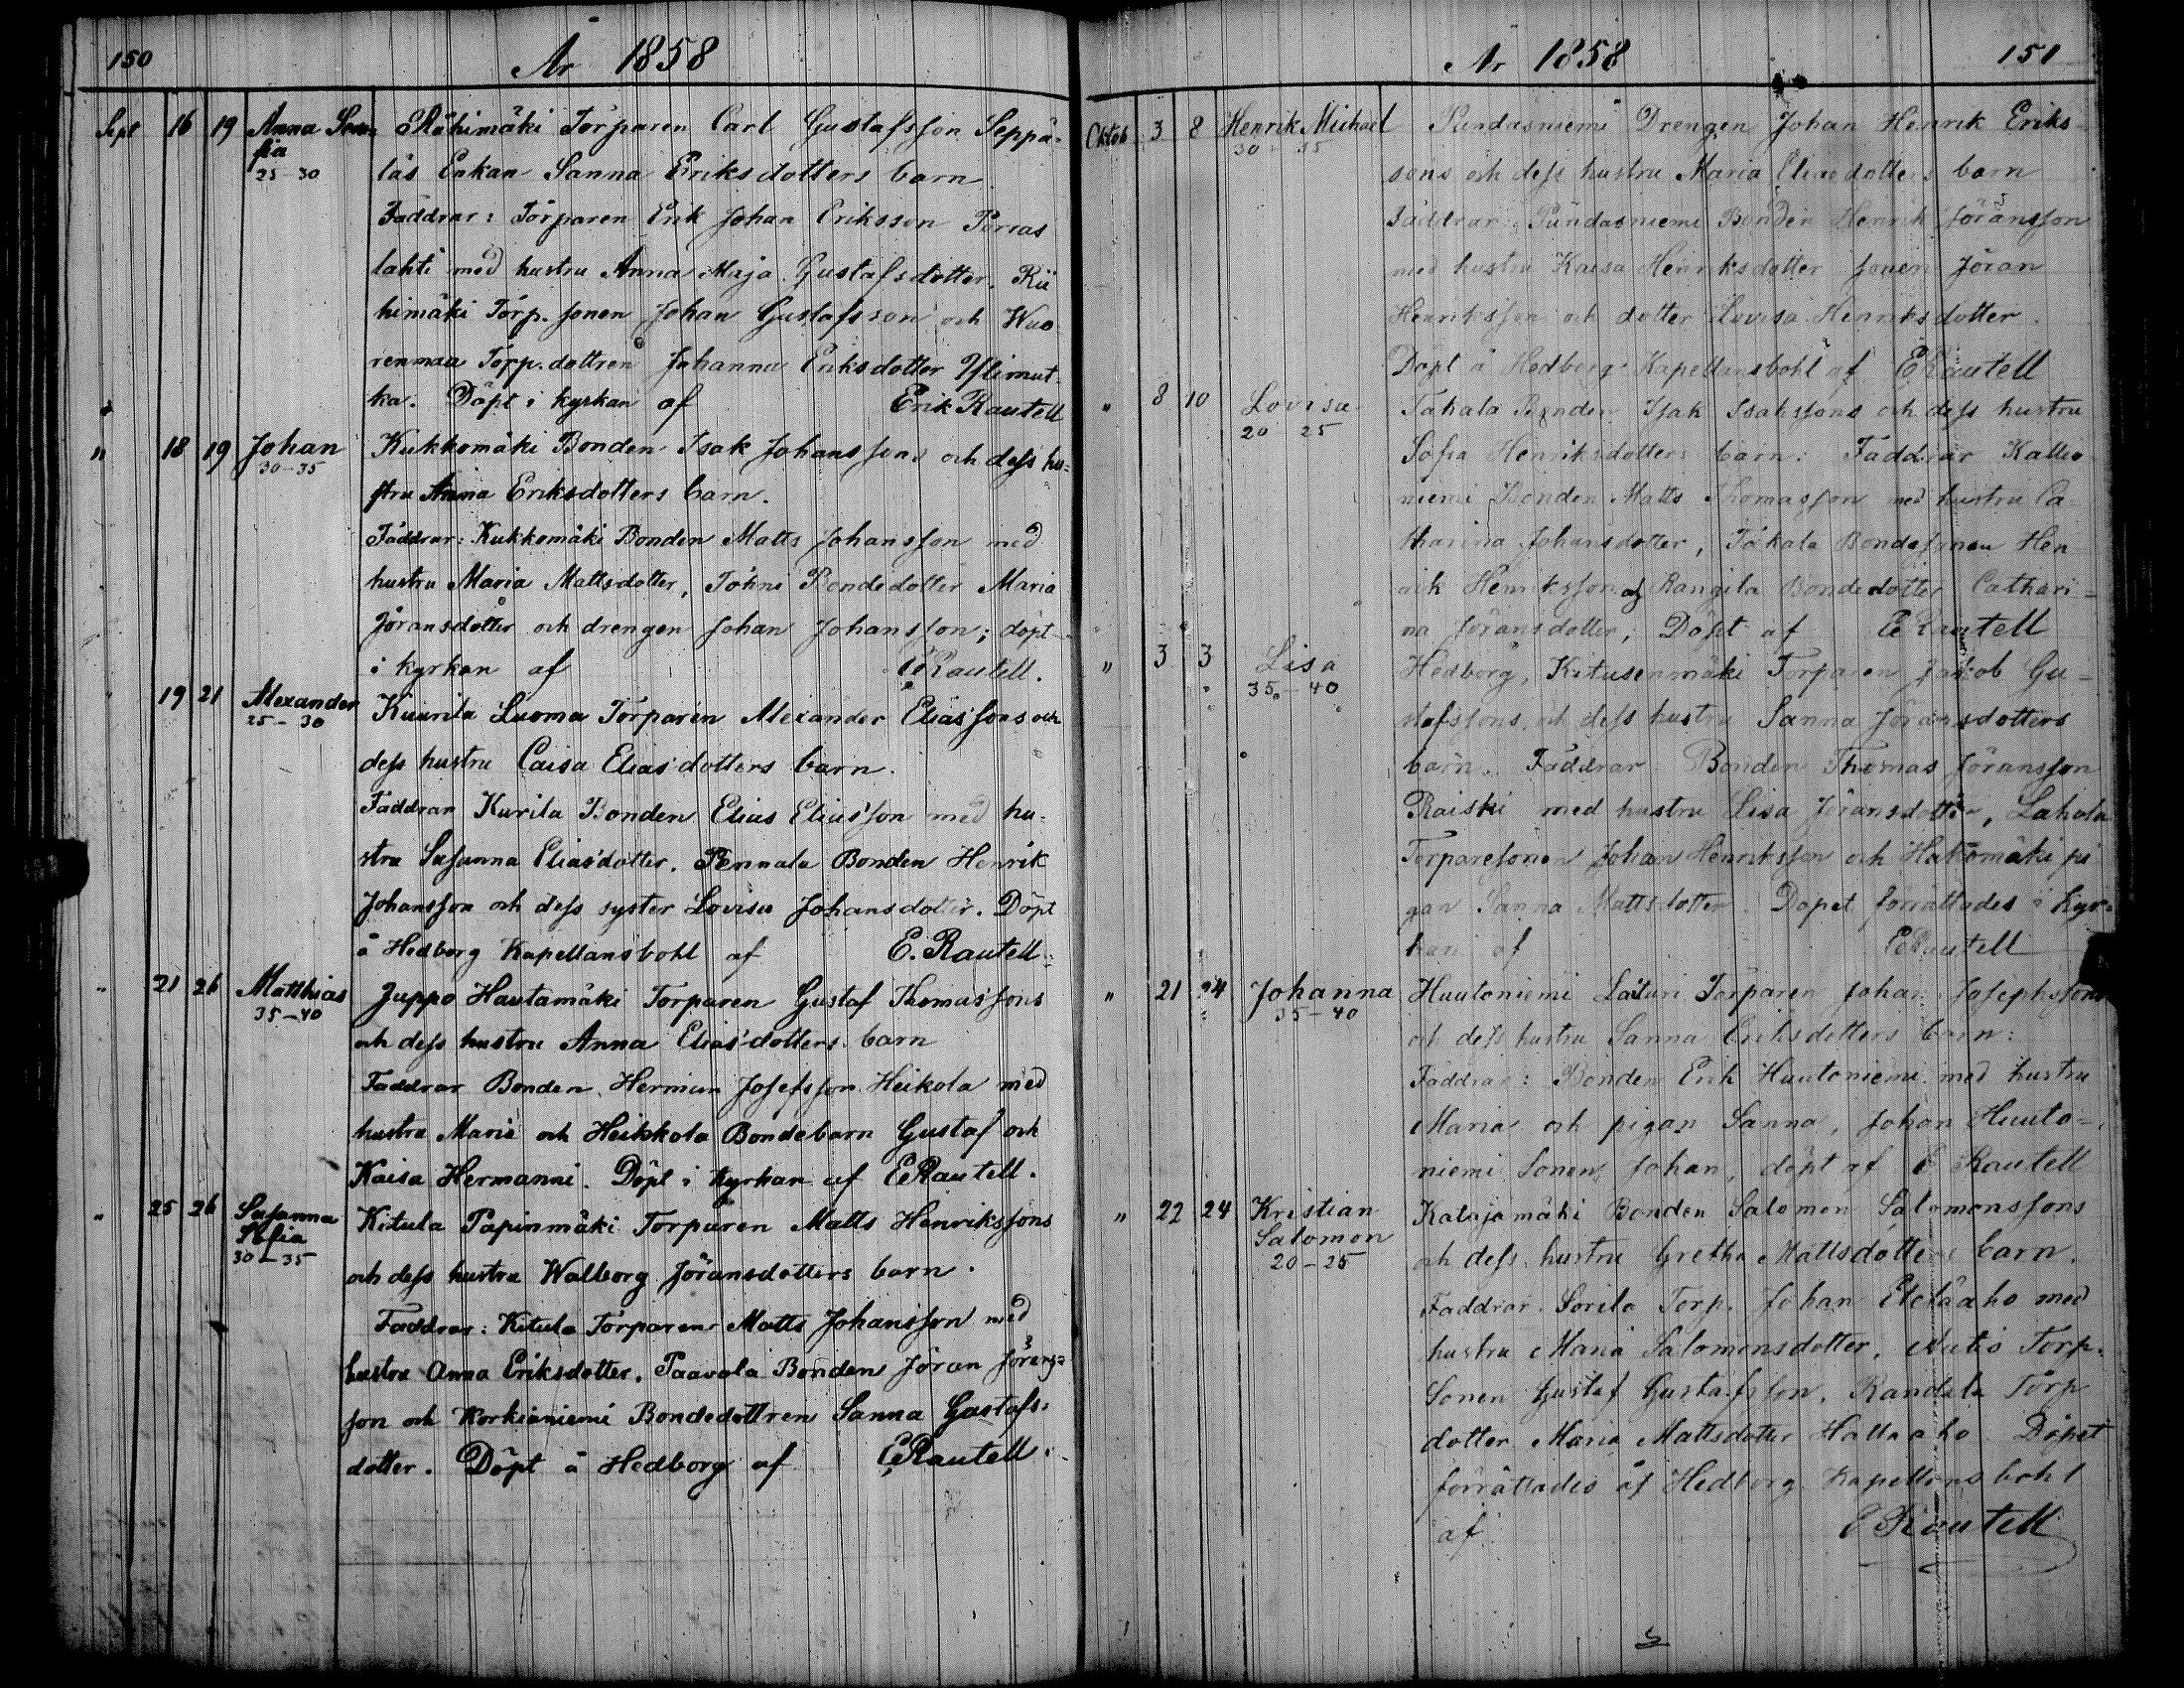 150
År 1858
Sept 16 19 Anna So-
fia
25-30
Riihimäki Torparen Carl Gustafsson Seppä-
läs Enkan Sanna Eriksdotters barn
Faddrar: Torparen Erik Johan Eriksson Porras
lahti med hustru Anna Maja Gustafsdotter, Rii
himäki Torp. sonen Johan Gustafsson och Wuo
renmaa Torp. dottren Johanna Eriksdotter Ylimut-
ka. Döpt i kyrkan af Erik Rautell
" 18 19 Johan
30-35
Kukkomäki Bonden Isak Johanssons och dess hu-
stru Anna Eriksdotters barn.
Faddrar: Kukkomäki Bonden Matts Johansson med
hustru Maria Mattsdotter, Töhni Bondedotter Maria
Jöransdotter och drengen Johan Johansson; döpt
i kyrkan af E Rautell.
" 19 21 Alexander
25-30
Kuurila Luoma Torparen Alexander Elias'sons och
dess hustru Caisa Elias'dotters barn.
Faddrar Kurila Bonden Elias Elias'son med hu-
stru Susanna Elias'dotter. Pennala Bonden Henrik
Johansson och dess syster Lovisa Johansdotter. Döpt
å Hedborg Kapellansbohl af E. Rautell
" 21 26 Matthias
35-40
Juppo Hautamäki Torparen Gustaf Thomas'sons
och dess hustru Anna Elias'dotters barn
Faddrar Bonden Herman Josefsson Heikola med
hustru Maria och Heikkola Bondebarn Gustaf och
Kaisa Hermanni. Döpt i kyrkan af E Rautell.
" 25 26 Susanna
Sofia
30-35
Kitula Papinmäki Torparen Matts Henrikssons
och dess hustru Walborg Jöransdotters barn.
Faddrar: Kitula Torparen Matts Johansson med
hustru Anna Eriksdotter, Paavola Bonden Jöran Jörans-
son och Korkianiemi Bondedottren Sanna Gustafs-
dotter. Döpt å Hedborg af E Rautell.
År 1858
151
Oktob 3 8 Henrik Michael
30-35
Pundasniemi Drengen Johan Henrik Eriks-
sons och dess hustru Maria Eliasdotters barn
Faddrar Pundasniemi Bonden Henrik Jöransson
med hustru Kaisa Henriksdotter sonen Jöran
Henriksson och dotter Lovisa Henriksdotter.
Döpt å Hedborg Kapellansbohl af E Rautell
" 8 10 Lovisa
20 25
Takala Bonden Isak Isakssons och dess hustru
Sofia Henriksdotters barn: Faddrar Kallio
niemi Bonden Matts Thomasson med hustru Ca
tharina Johansdotter, Takala Bondesonen Hen
rik Henriksson och Rangila Bondedotter Cathari-
na Jöransdotter, Döpt af E Rautell
" 3 3 Lisa
35-40
Hedborg, Kitusenmäki Torparen Jakob Gu-
stafssons och dess hustru Sanna Jöransdotters
barn. Faddrar Bonden Thomas Jöransson
Raiski med hustru Lisa Jöransdotter, Lahola
Torparesonen Johan Henriksson och Hakomäki pi
gan Sanna Mattsdotter. Dopet förrättades i kyr-
kan af E Rautell
" 21 24 Johanna
35-40
Huutoniemi Laituri Torparen Johan Josephssons
och dess hustru Sanna Eriksdotters barn:
Faddrar: Bonden Erik Huutoniemi med hustru
Maria och pigan Sanna, Johan Huuto-
niemi Sonen Johan, döpt af E Rautell
" 22 24 Kristian
Salomon
20-25
Katajamäki Bonden Salomon Salomonssons
och dess hustru Gretha Mattsdotters barn.
Faddrar. Sorila Torp. Johan Etelaaho med
hustru Maria Salomonsdotter, Torp.
Sonen Gustaf Gustafsson, Randala Torp
dotter Maria Mattsdotter Hallaaho Dopet
förrättades å Hedborg Kapellansbohl
af E Rautell